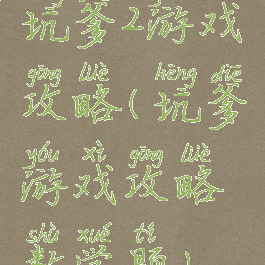 坑爹2游戏
gōng lüè kēng diē
攻略(坑爹
yóu xì gōng lüè
游戏攻略
shù xué tí
数学题)